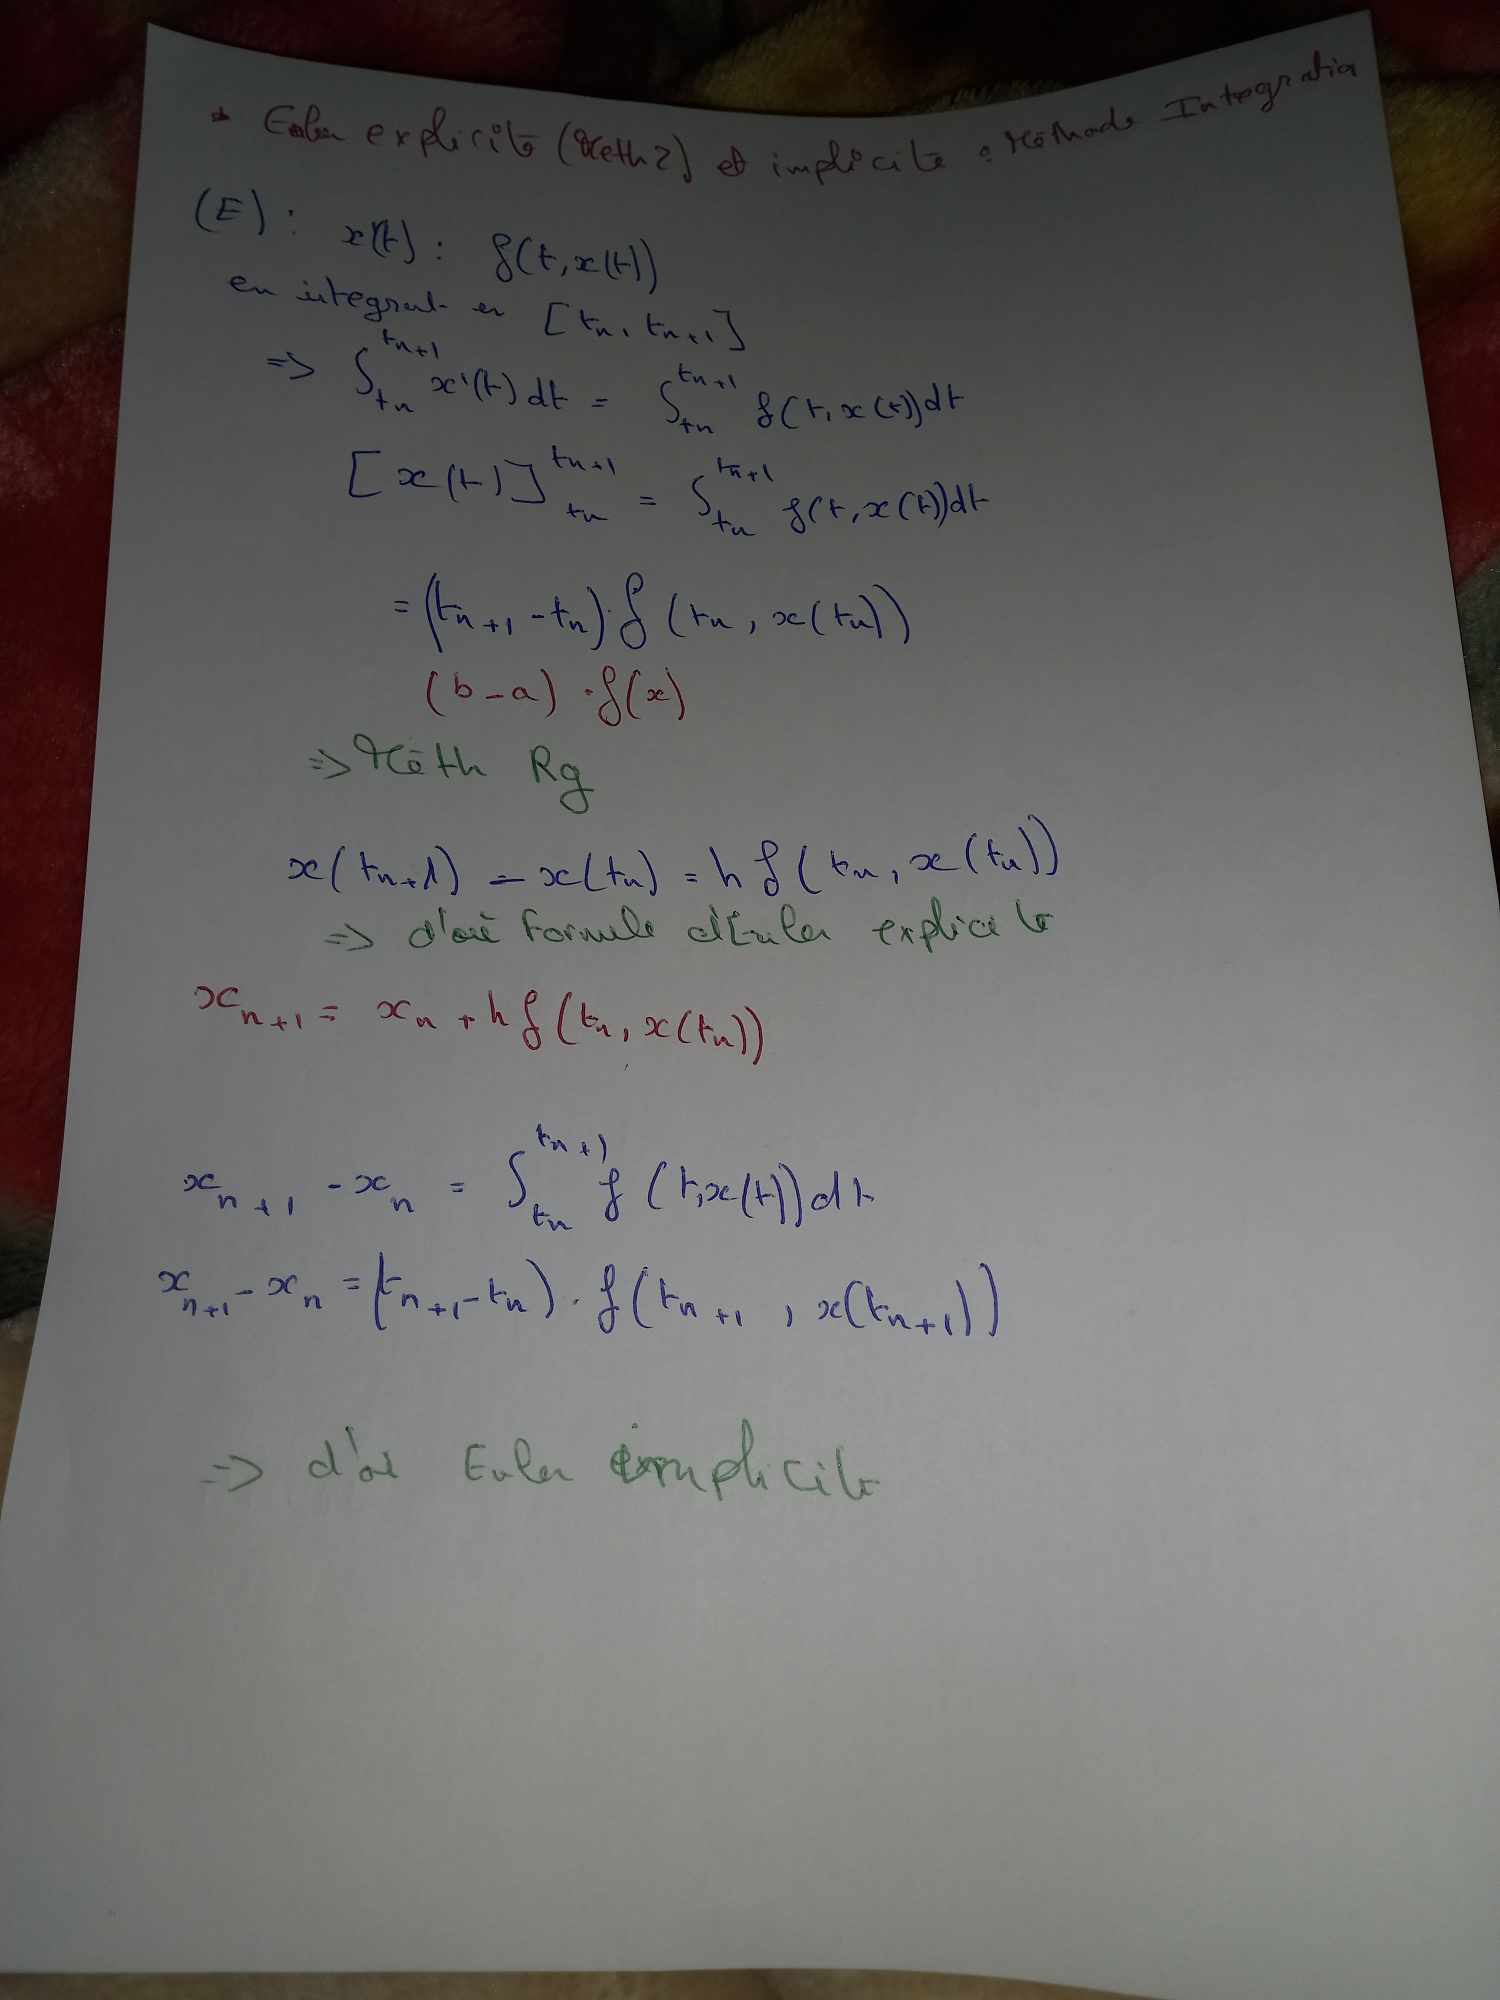 * Euler explicite (Méth 2) et implicite : Méthode Integratio
(E) : x(t) : f(t, x(t))
en integrant en [tn, tn+1]
=> ∫_{tn}^{tn+1} x'(t) dt = ∫_{tn}^{tn+1} f(t, x(t)) dt
[x(t)]_{tn}^{tn+1} = ∫_{tn}^{tn+1} f(t, x(t)) dt
= (tn+1 - tn) · f(tn, x(tn))
(b - a) · f(x)
=> Méth Rg
x(tn+1) - x(tn) = h f(tn, x(tn))
=> d'où Formule d'Euler explicite
xn+1 = xn + h f(tn, x(tn))
xn+1 - xn = ∫_{tn}^{tn+1} f(t, x(t)) dt
xn+1 - xn = (tn+1 - tn) · f(tn+1, x(tn+1))
=> d'où Euler implicite